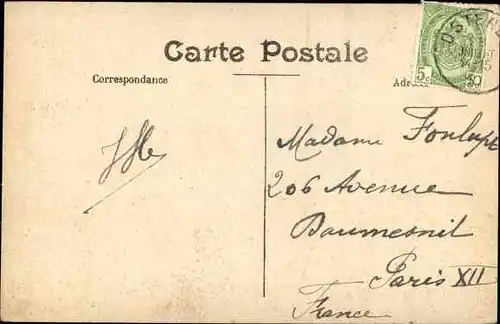 Carte Postale
Correspondance
Adresse
5c
Madame
206 Avenue
Daumesnil
Paris XII
France